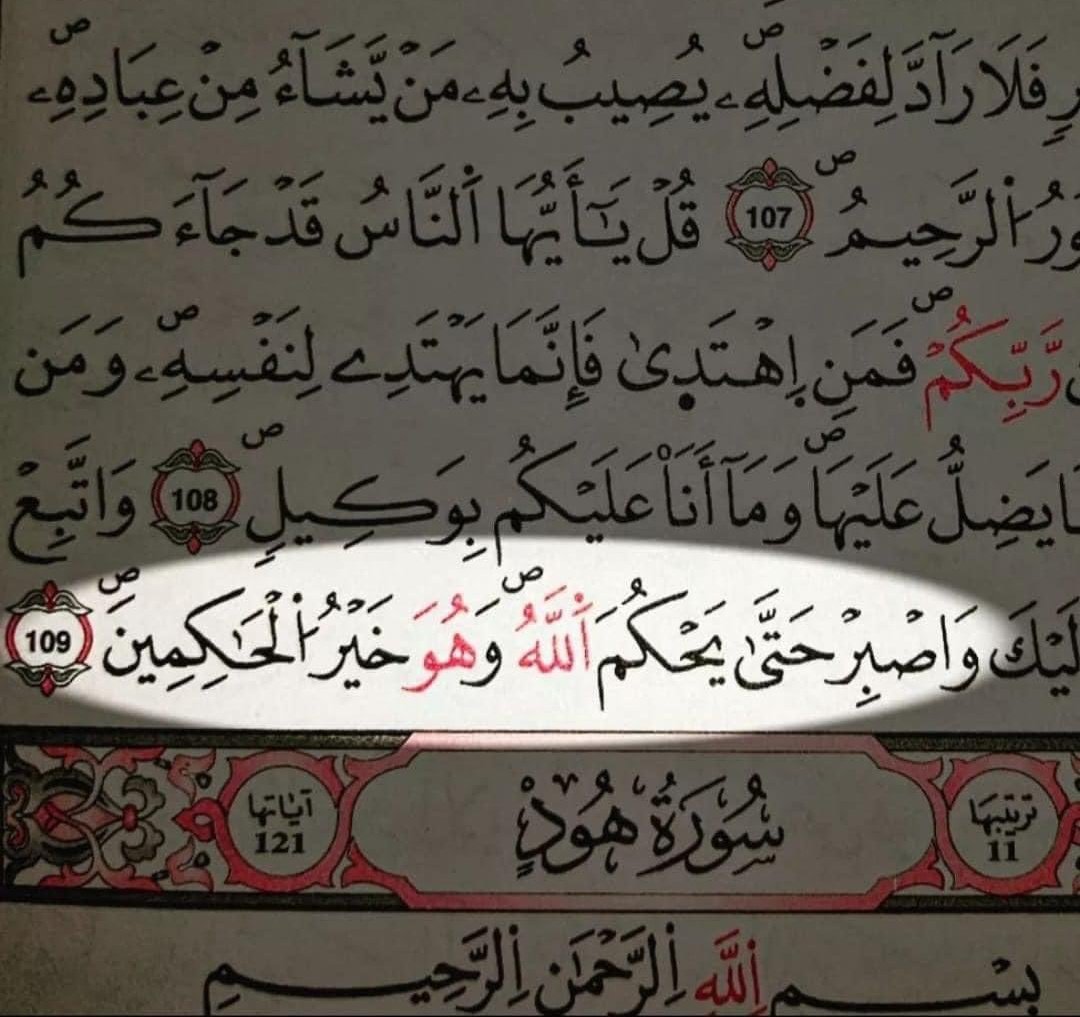 فَلَا رَآدَّ لِفَضْلِهِۦۖ يُصِيبُ بِهِۦ مَنْ يَّشَآءُ مِنْ عِبَادِهِۦ
اَ۬لرَّحِيمُۖ 107 قُلْ يَٰٓأَيُّهَا اَ۬لنَّاسُ قَدْ جَآءَكُمُ
رَّبِّكُمْۖ فَمَنِ اِ۪هْتَد۪ىٰ فَإِنَّمَا يَهْتَدِے لِنَفْسِهِۦۖ وَمَن
يَضِلُّ عَلَيْهَاۖ وَمَآ أَنَا۠ عَلَيْكُم بِوَكِيلٍۖ 108 وَاتَّبِعْ
وَاصْبِرْ حَتَّىٰ يَحْكُمَ اَ۬للَّهُۖ وَهُوَ خَيْرُ اُ۬لْحَٰكِمِينَۖ 109
ترتيبها 11 سُورَةُ هُودٍ آياتها 121
بِسْمِ اِ۬للَّهِ اِ۬لرَّحْمَٰنِ اِ۬لرَّحِيمِ